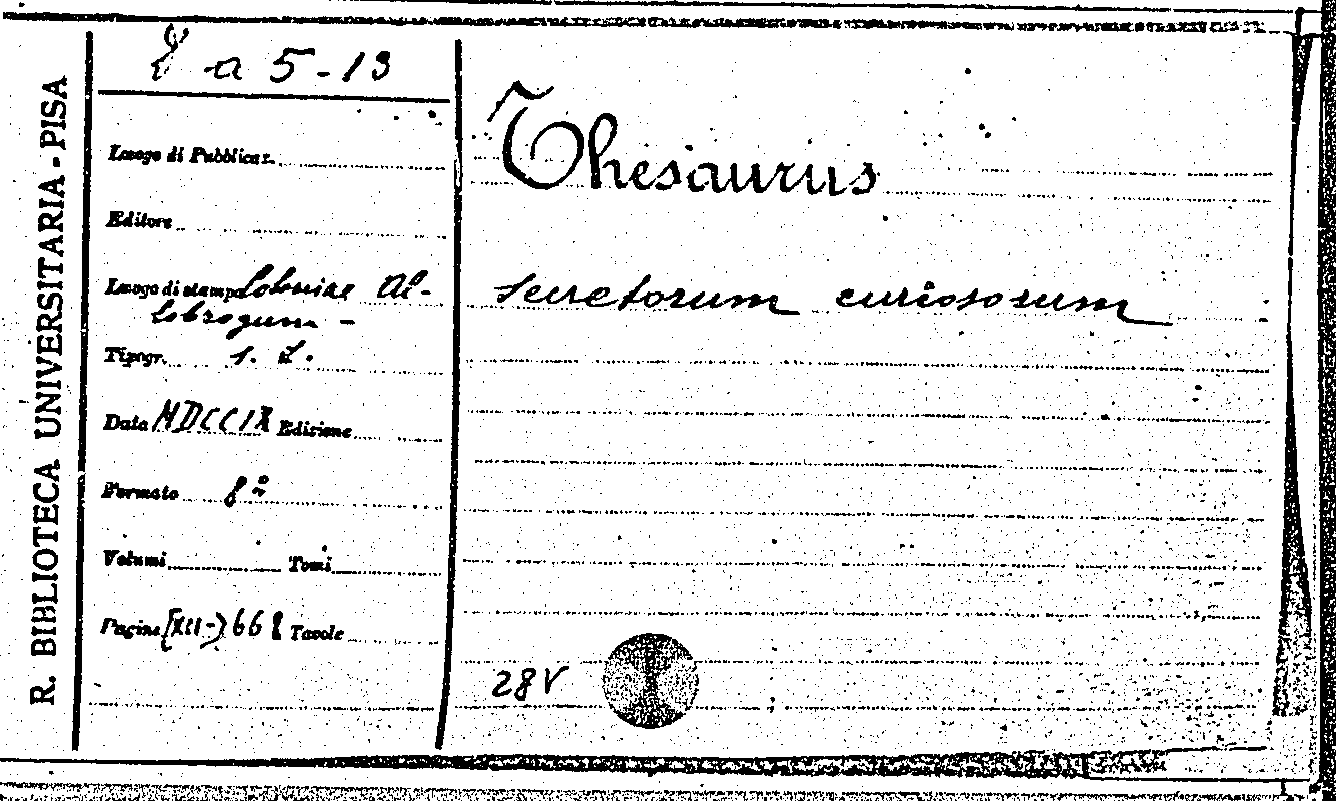 R. BIBLIOTECA UNIVERSITARIA - PISA
a 5-13
Luogo di Pubblicaz.
Editore
Luogo di stampa Coloniae Al-
lobrogum -
Tipogr. s. t.
Data MDCCIX Edizione
Formato 8º
Volumi Tomi
Pagine [XII-] 668 Tavole
Thesaurus
secretorum curiosorum
28 V